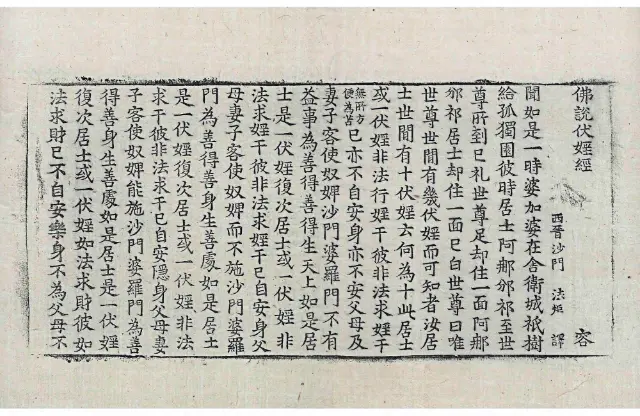 佛說伏婬經 容
西晉沙門 法炬 譯
聞如是一時婆加婆在舍衛城祇樹
給孤獨園彼時居士阿那邠祁至世
尊所到已礼世尊足却住一面阿那
邠祁居士却住一面已白世尊曰唯
世尊世間有幾伏婬而可知者汝居
士世間有十伏婬云何為十此居士
或一伏婬非法行婬干彼非法求婬干
無所方便為苦已亦不自安身亦不安父母及
妻子客使奴婢沙門婆羅門不有
益事為善得善得生天上如是居
士是一伏婬復次居士或一伏婬非
法求婬干彼非法求婬干已自安身父
母妻子客使奴婢而不施沙門婆羅
門為善得善身生善處如是居士
是一伏婬復次居士或一伏婬非法
求干彼非法求干已自安隱身父母妻
子客使奴婢能施沙門婆羅門為善
得善身生善處如是居士是一伏婬
復次居士或一伏婬如法求財彼如
法求財已不自安樂身不為父母不